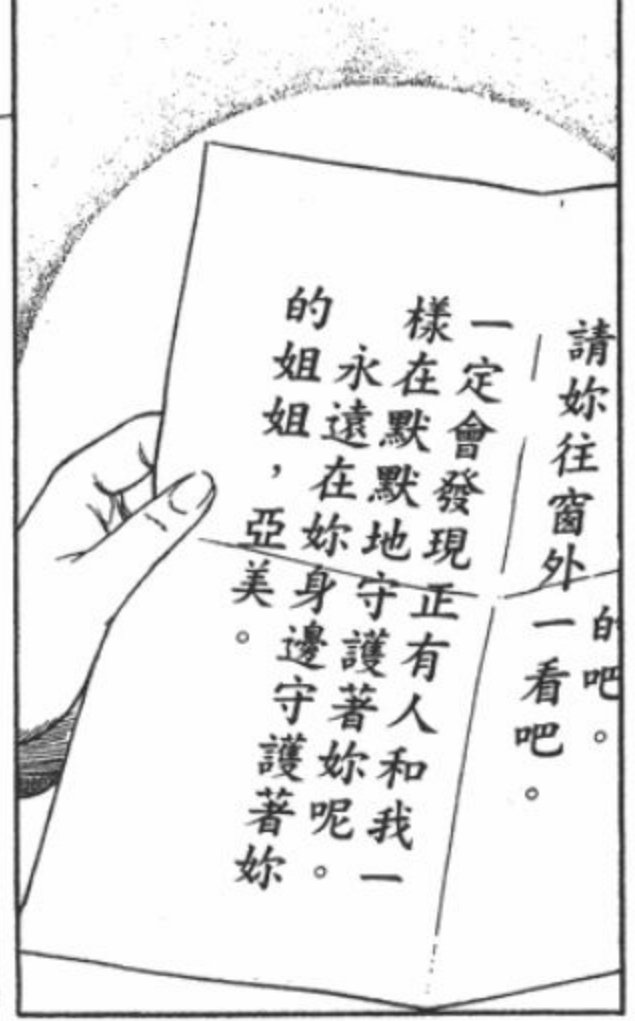 的吧。
請妳往窗外一看吧。
一定會發現正有人和我一
樣在默默地守護著妳呢。
永遠在妳身邊守護著妳
的姐姐，亞美。